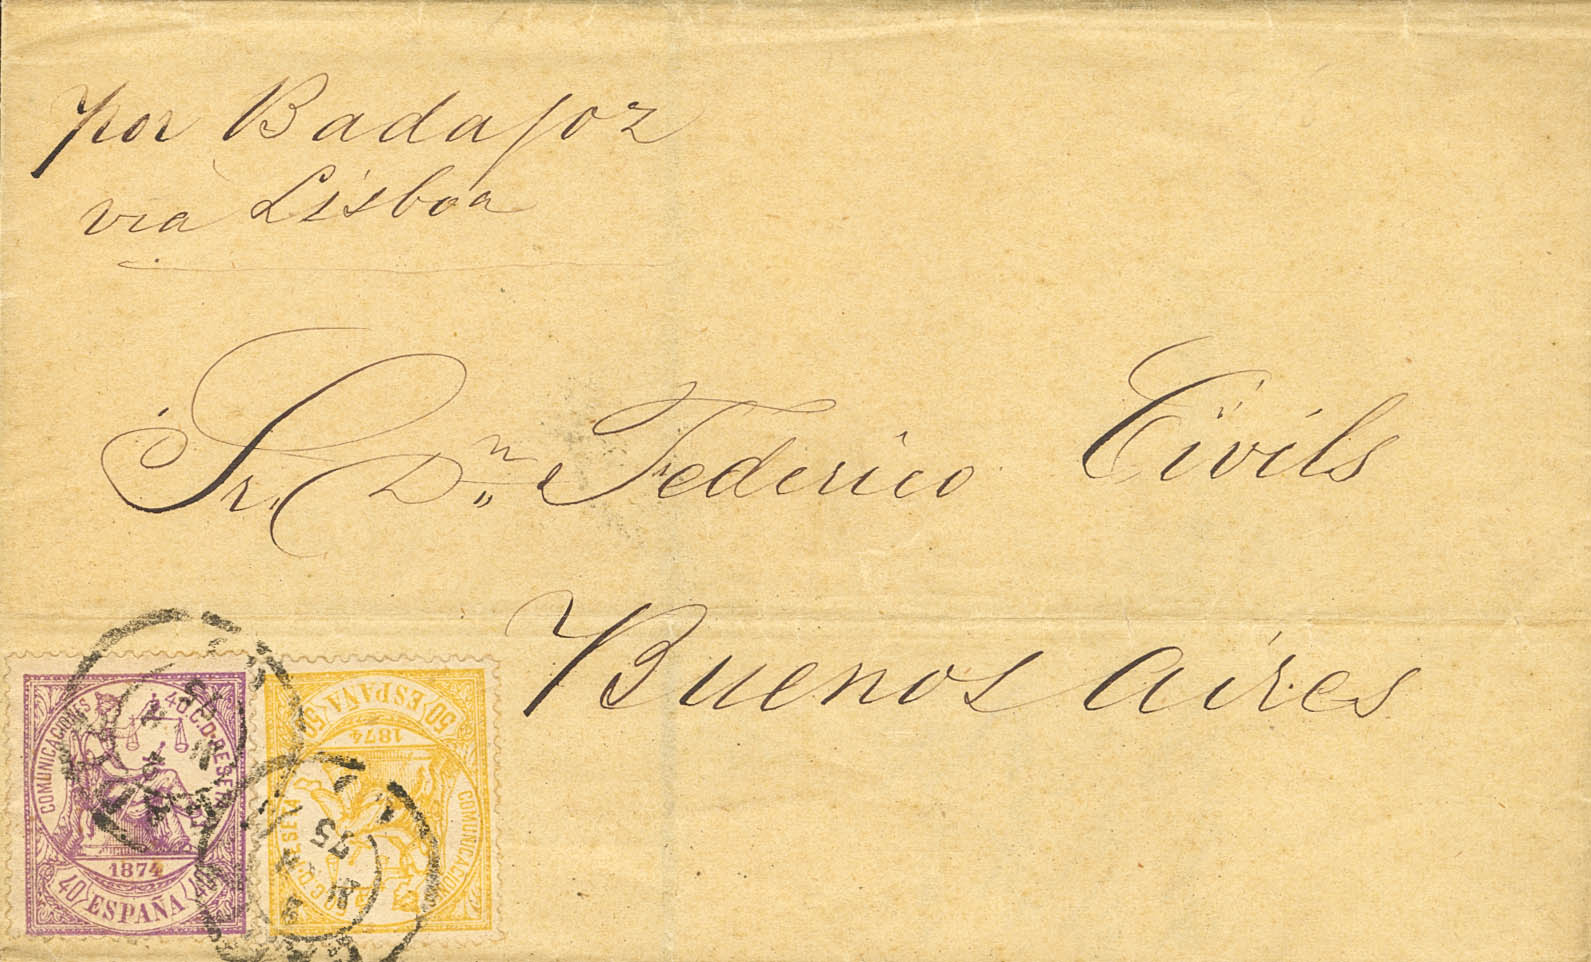 por Badajoz
via Lisboa
Sr. Dn. Federico Civils
Buenos Aires
COMUNICACIONES 40 C. D PESETA
1874
40 ESPAÑA 40
50 ESPAÑA 50
1874
75